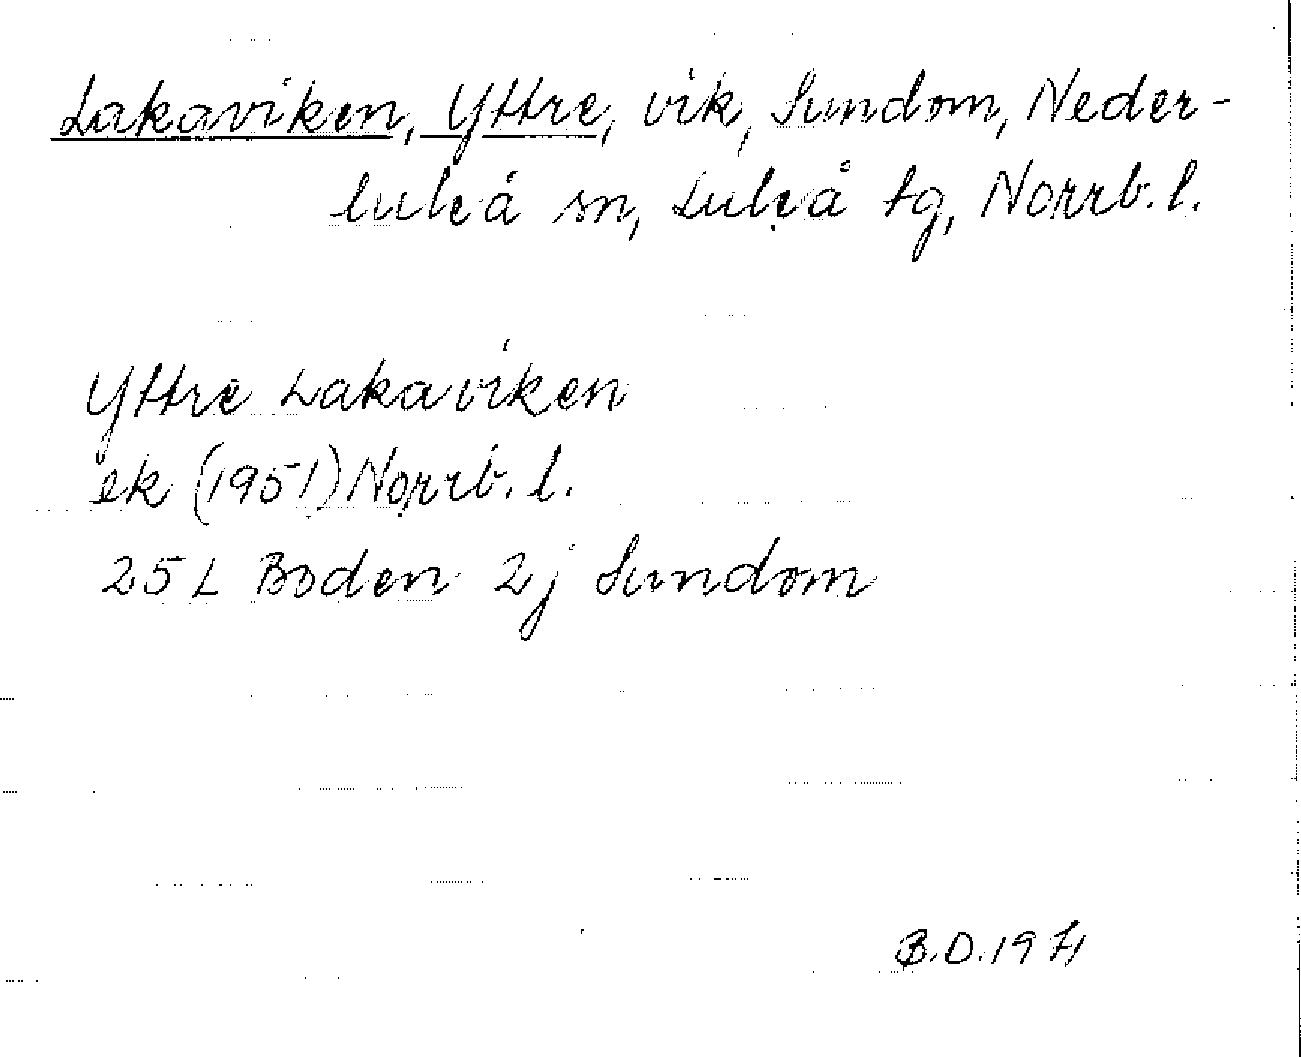 Lakaviken, Yttre, vik, Sundom, Neder-
luleå sn, Luleå tg, Norrb. l.
Yttre Lakaviken
ek (1951) Norrb. l.
25 L Boden 2j Sundom
B.D. 1971